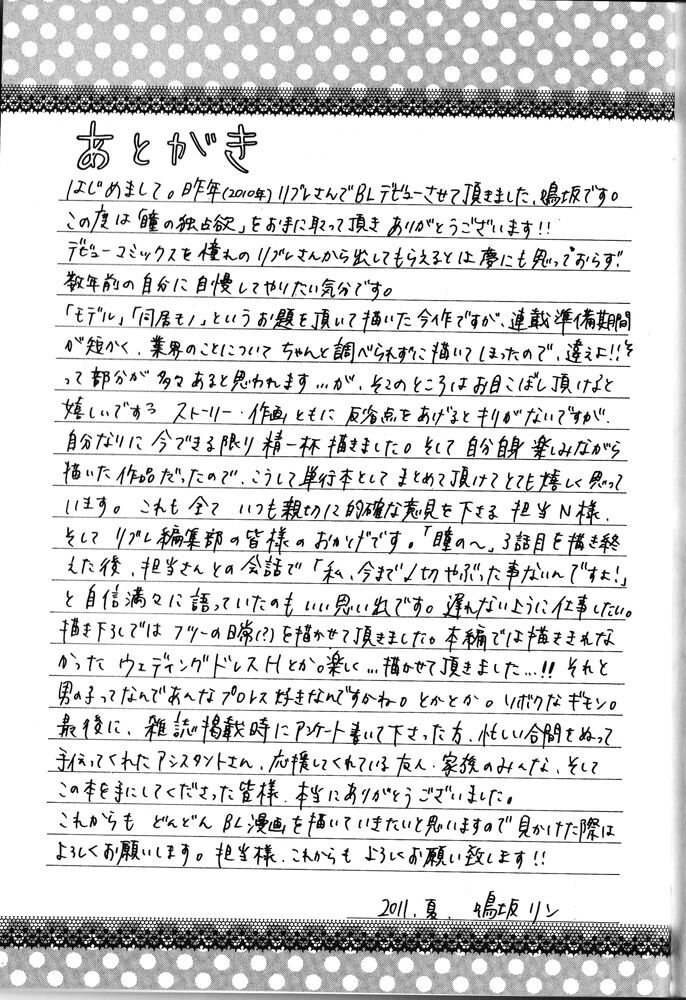 あとがき
はじめまして。昨年(2010年)リブレさんでBLデビューさせて頂きました、鳴坂です。
この度は「瞳の独占欲」をお手に取って頂きありがとうございます!!
デビューコミックスを憧れのリブレさんから出してもらえるとは夢にも思っておらず、
数年前の自分に自慢してやりたい気分です。
「モデル」「同居モノ」というお題を頂いて描いた今作ですが、連載準備期間
が短かく、業界のことについてちゃんと調べられずに描いてしまったので、違えよ!!そ
って部分が多々あると思われます…が、そこのところはお目こぼし頂けると
嬉しいでする ストーリー・作画ともに反省点をあげるとキリがないですが、
自分なりに今できる限り精一杯描きました。そして自分自身楽しみながら
描いた作品だったので、こうして単行本としてまとめて頂けてとても嬉しく思って
います。これも全ていつも親切に的確な意見を下さる担当N様、
そしてリブレ編集部の皆様のおかげです。「瞳の〜」3話目を描き終
えた後、担当さんとの会話で「私、今まで〆切やぶった事ないんですよ!」
と自信満々に語っていたのもいい思い出です。遅れないように仕事したい。
描き下ろしではフツーの日常(?)を描かせて頂きました。本編では描ききれな
かったウェディングドレスHとか。楽しく…描かせて頂きました…!!それと
男の子ってなんであんなプロレス好きなんですかね。とかとか。ソボクなギモン。
最後に、雑誌掲載時にアンケート書いて下さった方、忙しい合間をぬって
手伝ってくれたアシスタントさん、応援してくれている友人・家族のみんな、そして
この本を手にしてくださった皆様、本当にありがとうございました。
これからもどんどんBL漫画を描いていきたいと思いますので見かけた際は
よろしくお願いします。担当様、これからもよろしくお願い致します!!
2011.夏. 鳴坂リン